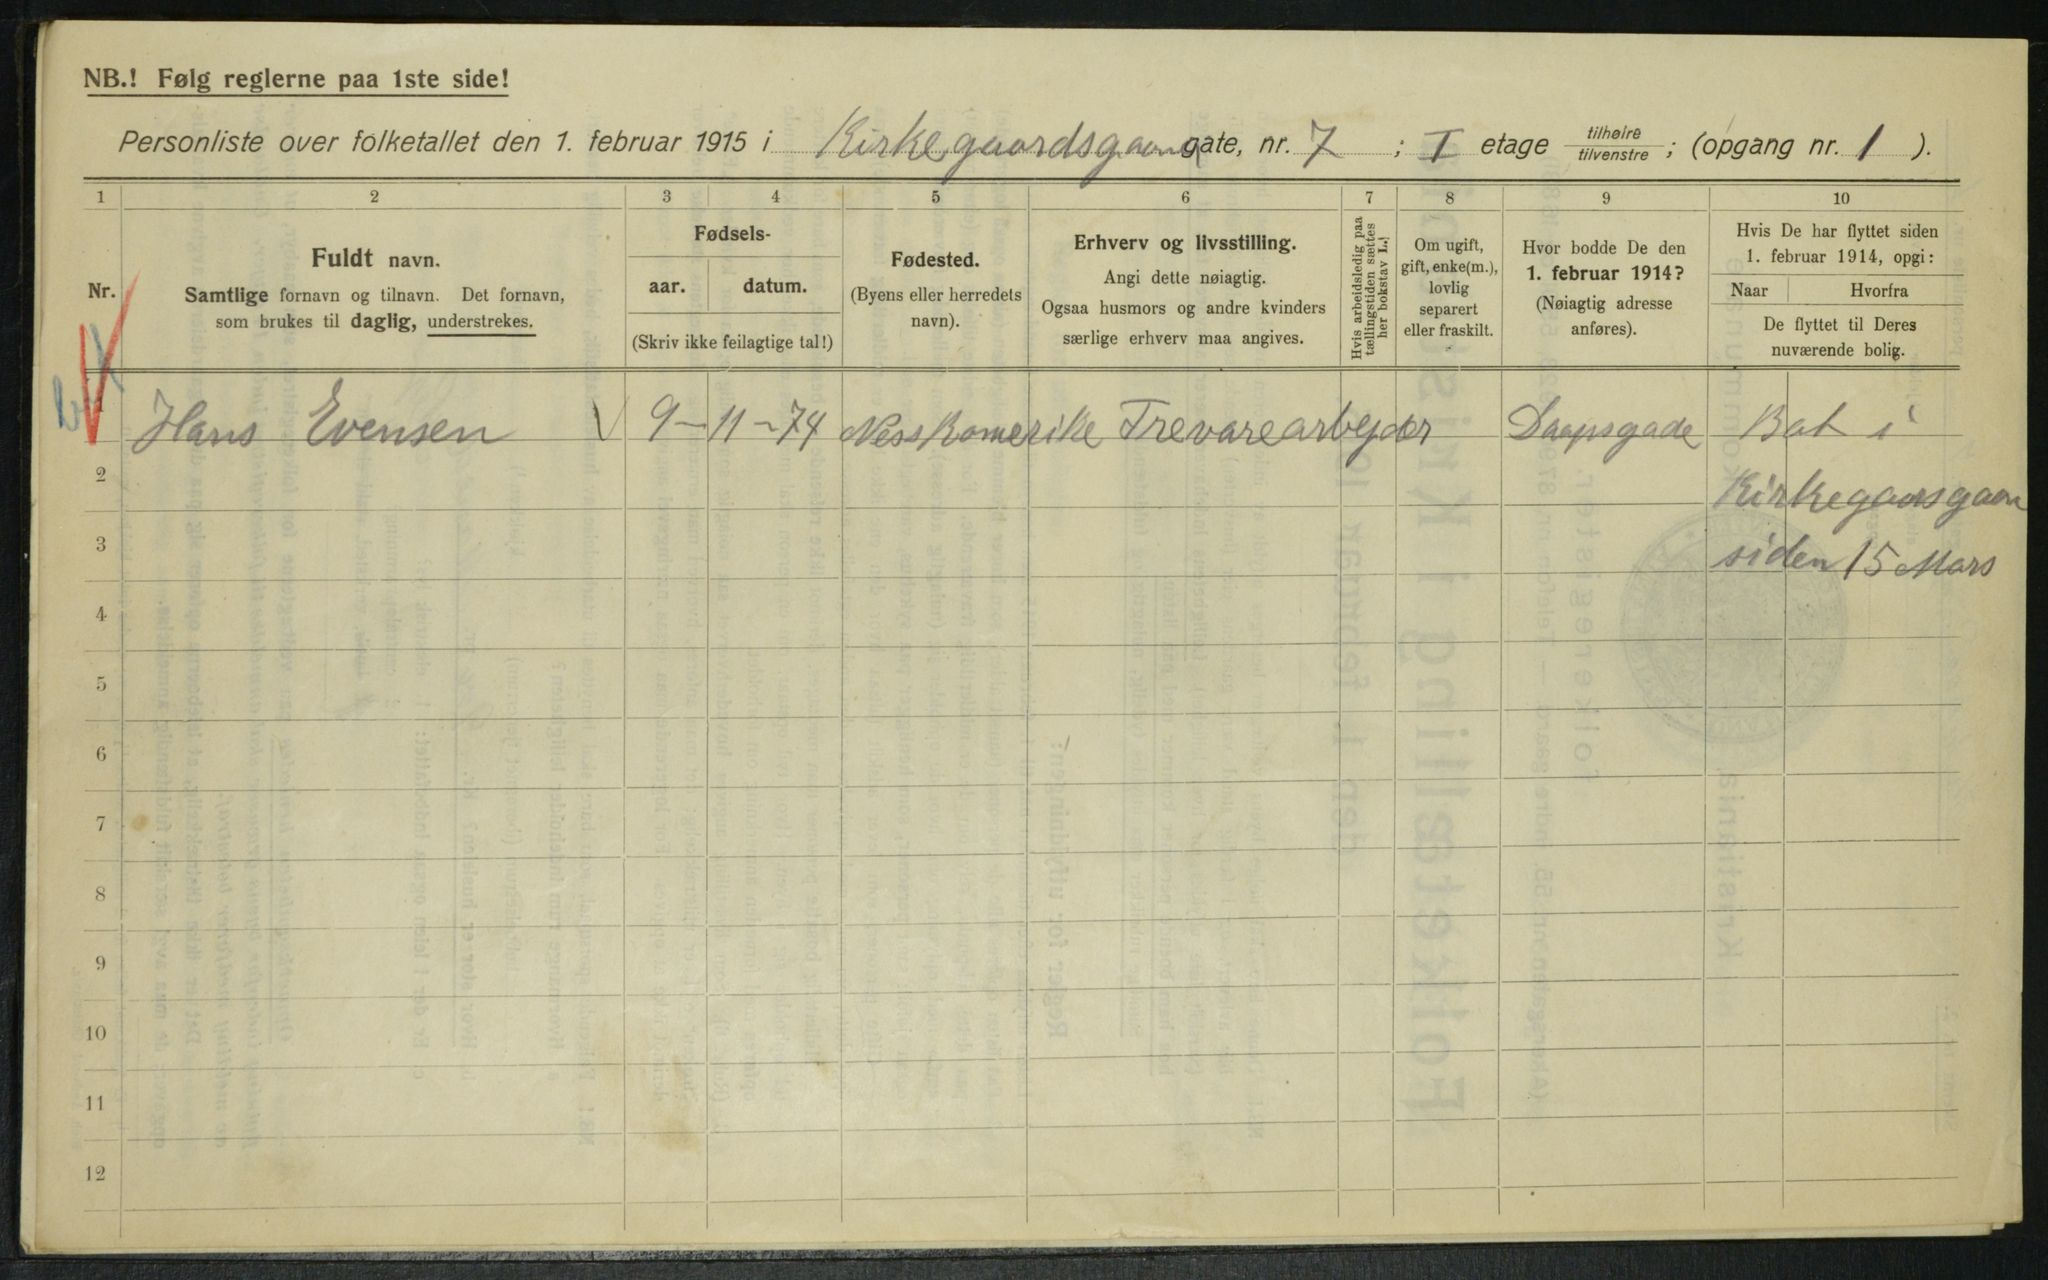 NB.! Følg reglerne paa 1ste side!
Personliste over folketallet den 1. februar 1915 i Kirkegaardsgaan gate, nr. 7 ; I etage tilhøire tilvenstre ; (opgang nr. 1 ).
1 2 3 4 5 6 7 8 9 10
Nr.
Fuldt navn.
Samtlige fornavn og tilnavn. Det fornavn,
som brukes til daglig, understrekes.
Fødsels-
aar. datum.
(Skriv ikke feilagtige tal!)
Fødested.
(Byens eller herredets
navn).
Erhverv og livsstilling.
Angi dette nøiagtig.
Ogsaa husmors og andre kvinders
særlige erhverv maa angives.
Hvis arbeidsledig paa
tællingstiden sættes
her bokstav L.!
Om ugift,
gift, enke(m.),
lovlig
separert
eller fraskilt.
Hvor bodde De den
1. februar 1914?
(Nøiagtig adresse
anføres).
Hvis De har flyttet siden
1. februar 1914, opgi:
Naar Hvorfra
De flyttet til Deres
nuværende bolig.
1 Hans Evensen 9-11-74 Ness Romerike Trevarearbejder Daapsgade Bot i
2 Kirkegaarsgaan
3 siden 15 Mars
4
5
6
7
8
9
10
11
12